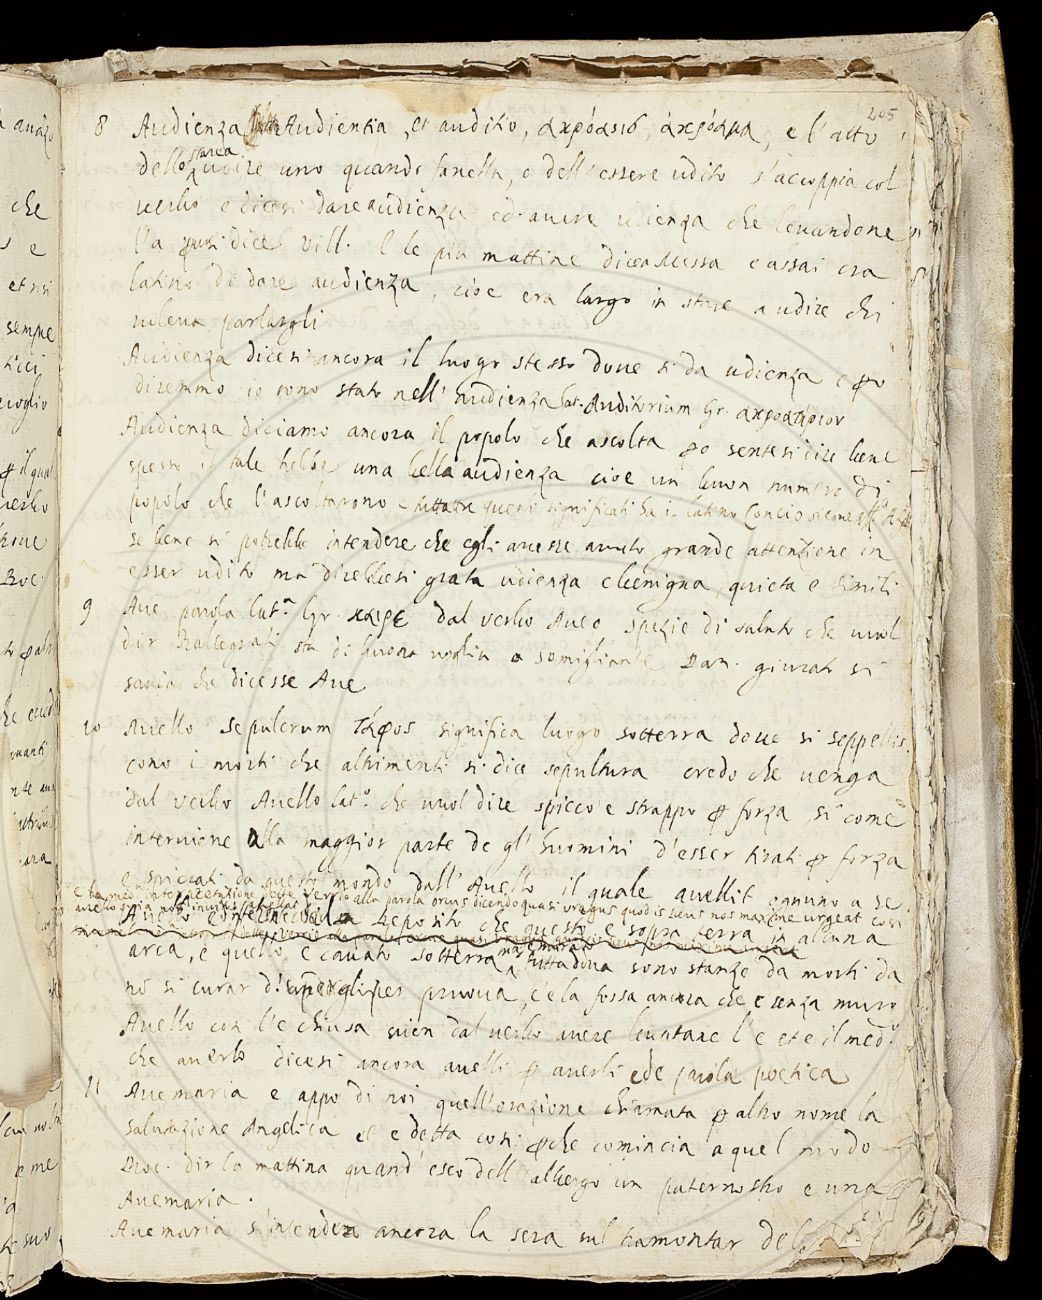 205
8 Audienza Audientia, et auditio, ακρόασισ, ἀκρόαμα, e l'atto
dello stare a udire uno quando favella, o dell'essere udito s'accoppia col
uerbo e dicesi dare audienza ed auere udienza che leuandone
l'a pur si dice Vill. E le più mattine diceva messa e assai era
latino di dare audienza, cioe era largo in stare a udire chi
uoleua parlargli
Audienza dicesi ancora il luogo stesso doue si da udienza e ꝑo
diremmo io sono stato nell'audienza lat. Auditorium Gr. ακροατήριον
Audienza diciamo ancora il popolo che ascolta ꝑo sentesi dire bene
spesso il tale hebbe una bella audienza cioe un buon numero di
popolo che l'ascoltarono e tuttatre questi significati ha il latino Concio
se bene si potrebbe intendere che egli auesse auuto grande attenzione in
esser udito ma direbbesi grata udienza e benigna, quieta e simili
9 Aue parola lat.ª Gr. χαιρε dal uerbo Aueo spezie di saluto che uuol
dir Rallegrati sta di buona uoglia o somigliante Dan. giurat si
saria che dicesse Aue
10 Auello sepulcrum τάφος significa luogo sotterra doue si seppellis
cono i morti che altrimenti si dice sepultura credo che uenga
dal uerbo Auello lat.º che uuol dire spicco e strappo ꝑ forza si come
interuiene alla maggior parte de gl'huomini d'esser tirati ꝑ forza
e spiccati da questo mondo dall'Auello il quale auellit ognuno a se
alla parola orcus dicendo quasi urgus quod is sicut nos maxime urgeat cosi
Auello e Deposito che questo e sopra terra in alcuna
arca, e quello e cauato sotterra ma tuttadoua sono stanze da morti da
nõ si curar d' per pruoua, c'e la fossa ancora che e senza muro
Auello con l'e chiusa uien dal uerbo auere leuatane l'e et e il med.º
che auerlo dicesi ancora auelli ꝑ auerli ed e parola poetica
11 Auemaria e appo di noi quell'orazione chiamata ꝑ altro nome la
salutazione Angelica et e detta cosi ꝑche comincia a quel modo
Boc. dir la mattina quand'esco dell'albergo un paternostro e una
Auemaria.
Auemaria s'intende ancora la sera sul tramontar del